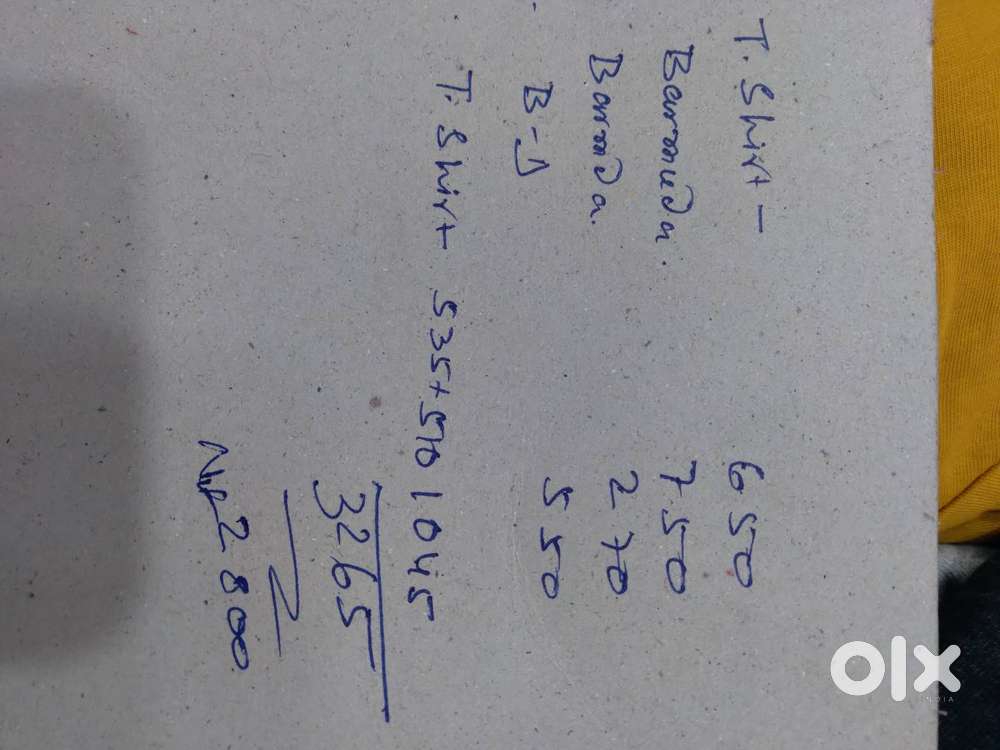 T. Shirt - 650
Barmuda. 750
Barmuda. 270
B-D 550
T. Shirt 535+510 1045
3265
Net 2800
olx
INDIA